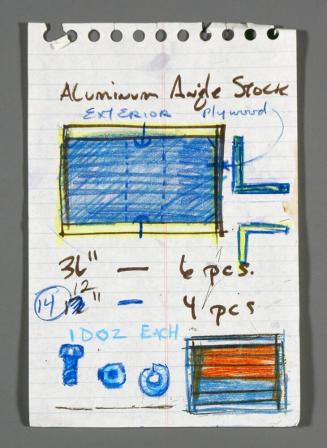 Aluminum Angle Stock
EXTERIOR plywood
36" — 6 pcs.
14 12" — 4 pcs
1 DOZ EACH